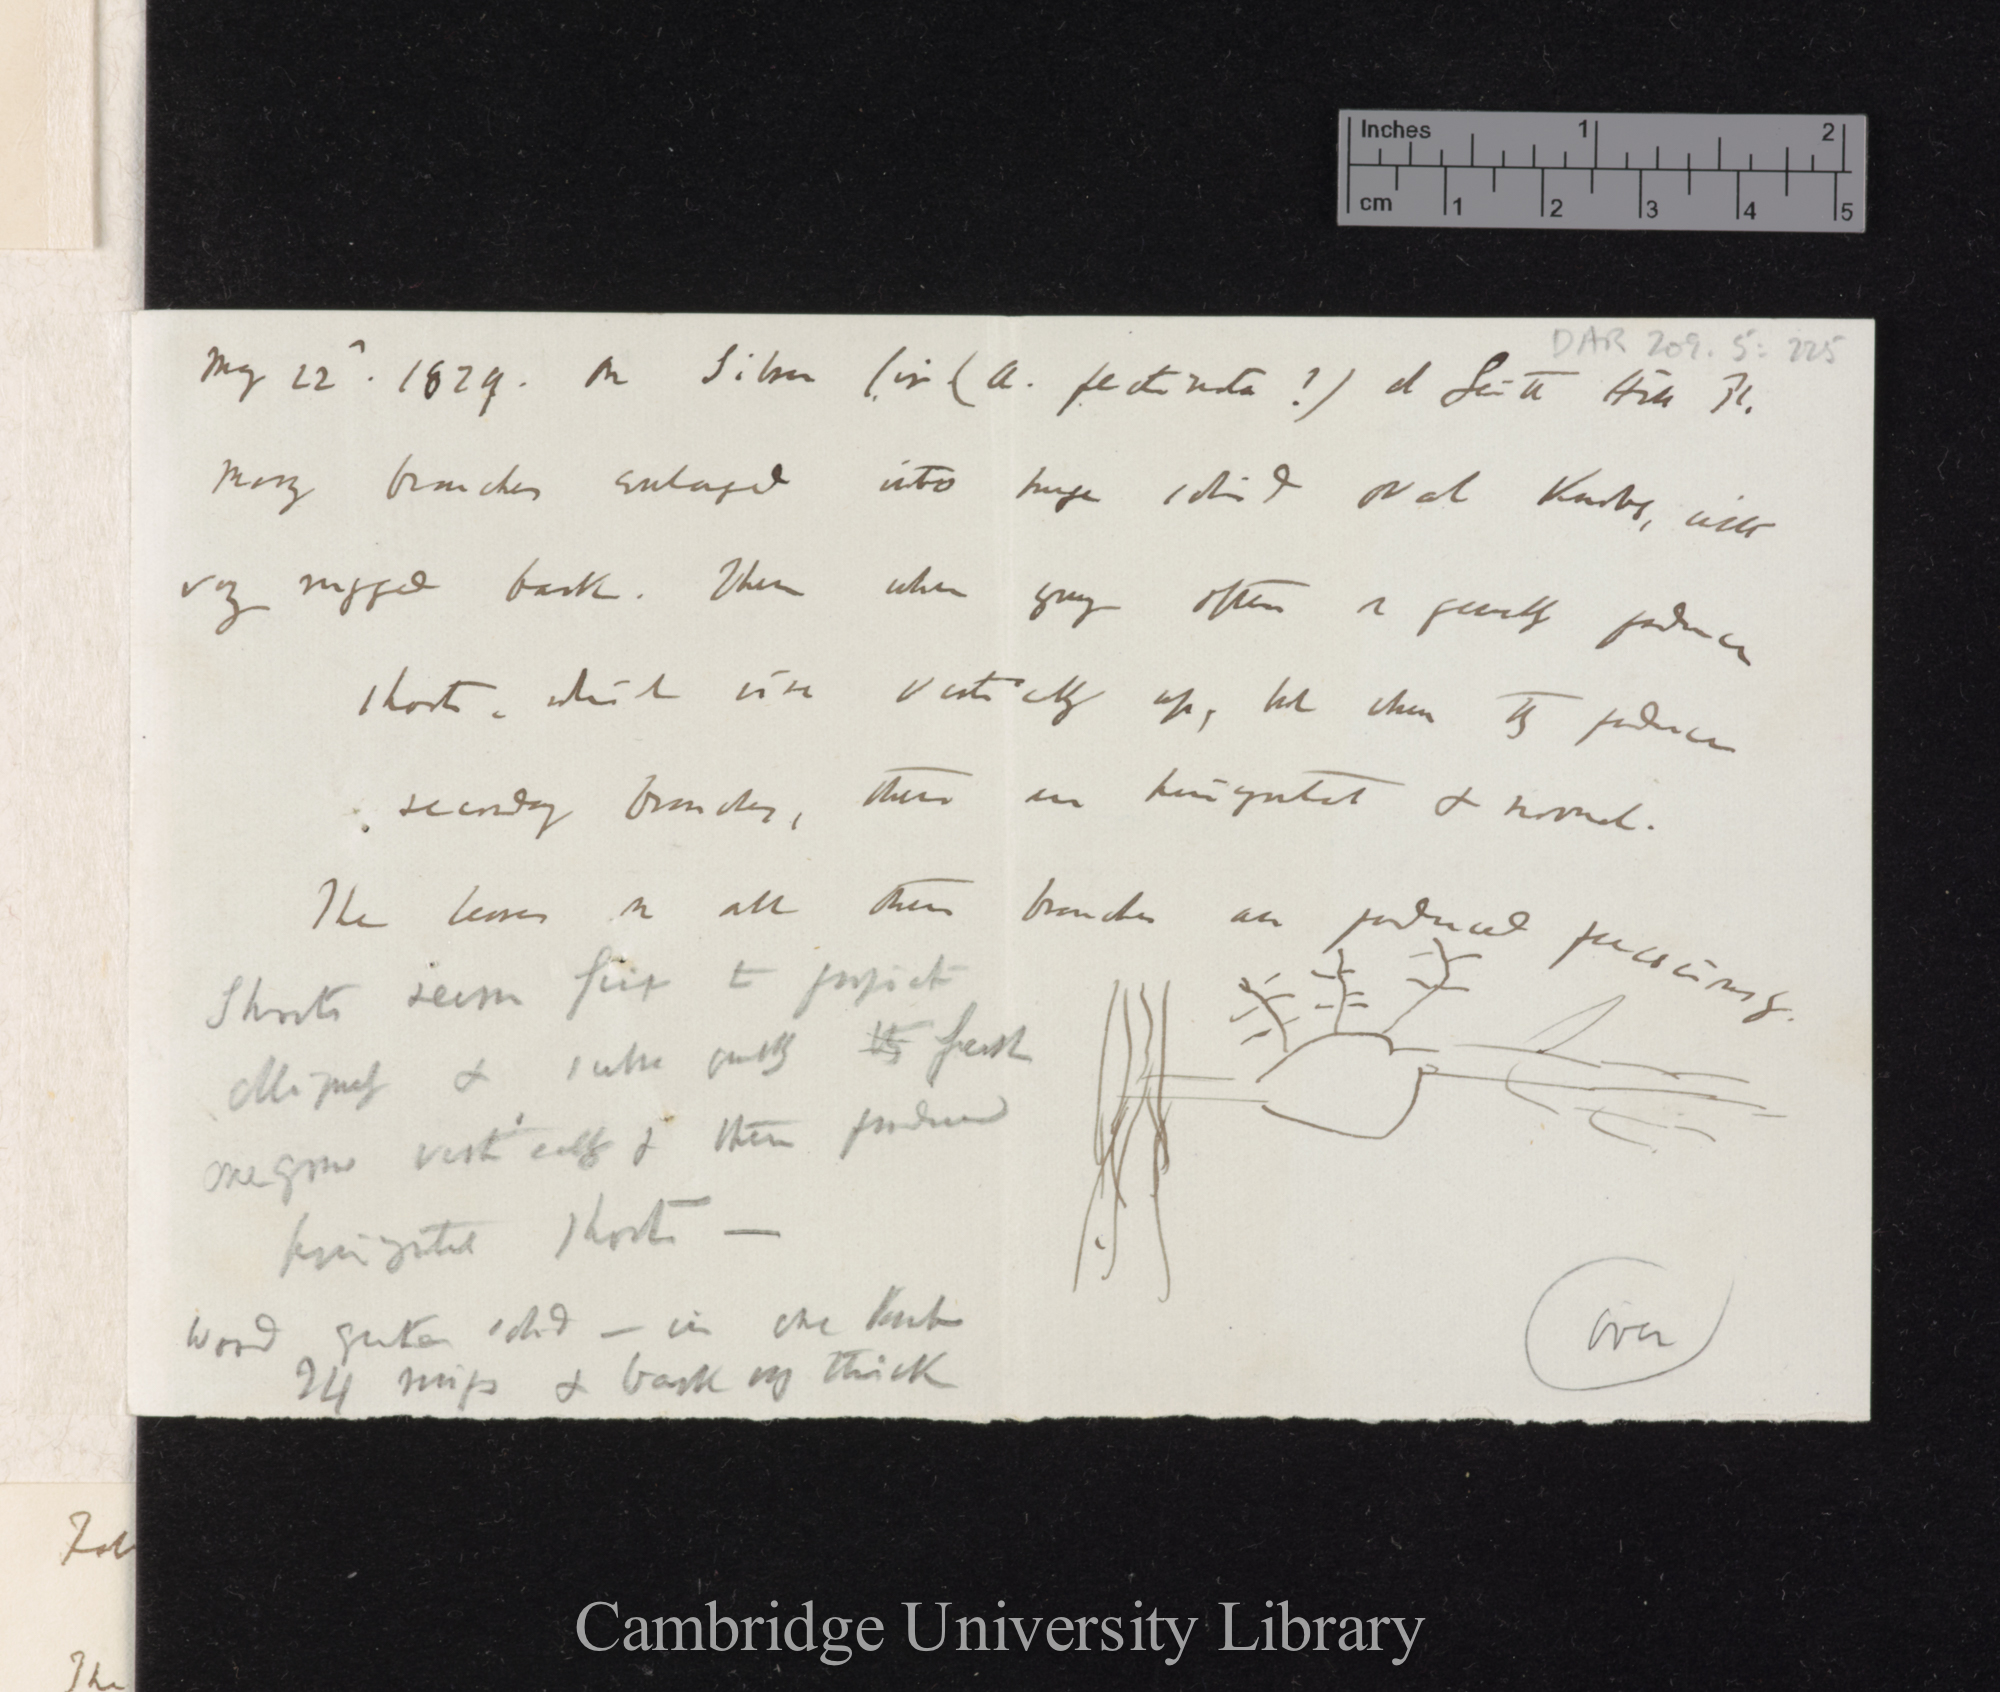 Inches 1 2
cm 1 2 3 4 5
DAR 209. 5: 225
May 22d. 1879. On Silver fir (A. pectinata ?) at Leith Hill Pl.
Many branches enlarged into huge solid oval knobs, with
very rugged bark. These when young often or generally produce
shoots, which rise vertically up, but when they produce
secondary branches, these are horizontal & normal.
The leaves on all these branches are produced
Shoots seem first to project
obliquely & subsequently they
one grow vertically & then produce
shoots —
Wood quite solid — in one knob
24 rings & bark very thick
over
The
Cambridge University Library